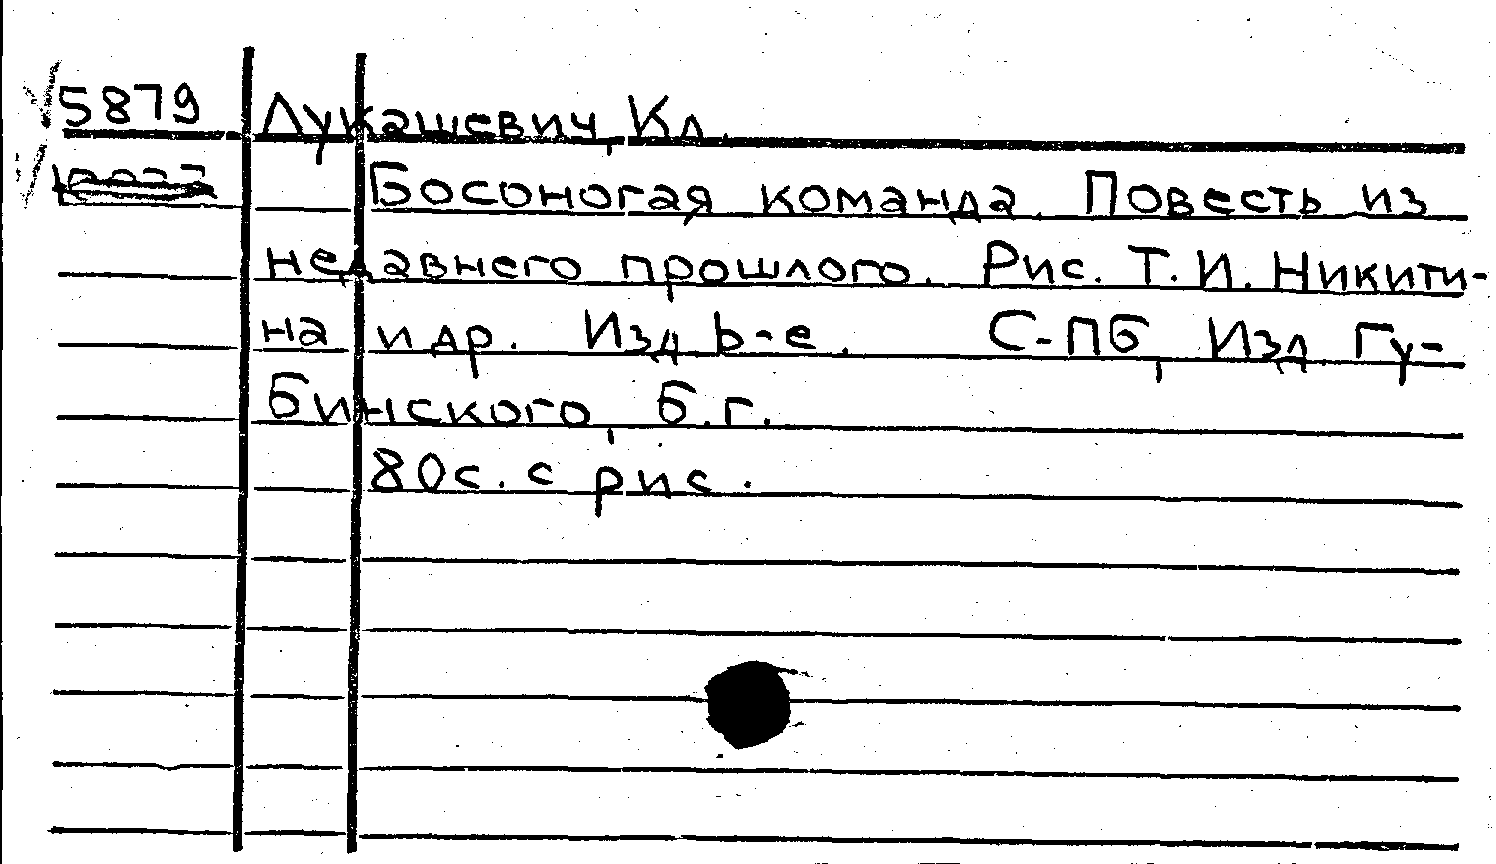 5879 Лукашевич, Кл.
Босоногая команда. Повесть из
недавнего прошлого. Рис. Т. И. Никити-
на и др. Изд Ь-е. С-ПБ, Изд. Гу-
бинского, б.г.
80с. с рис.